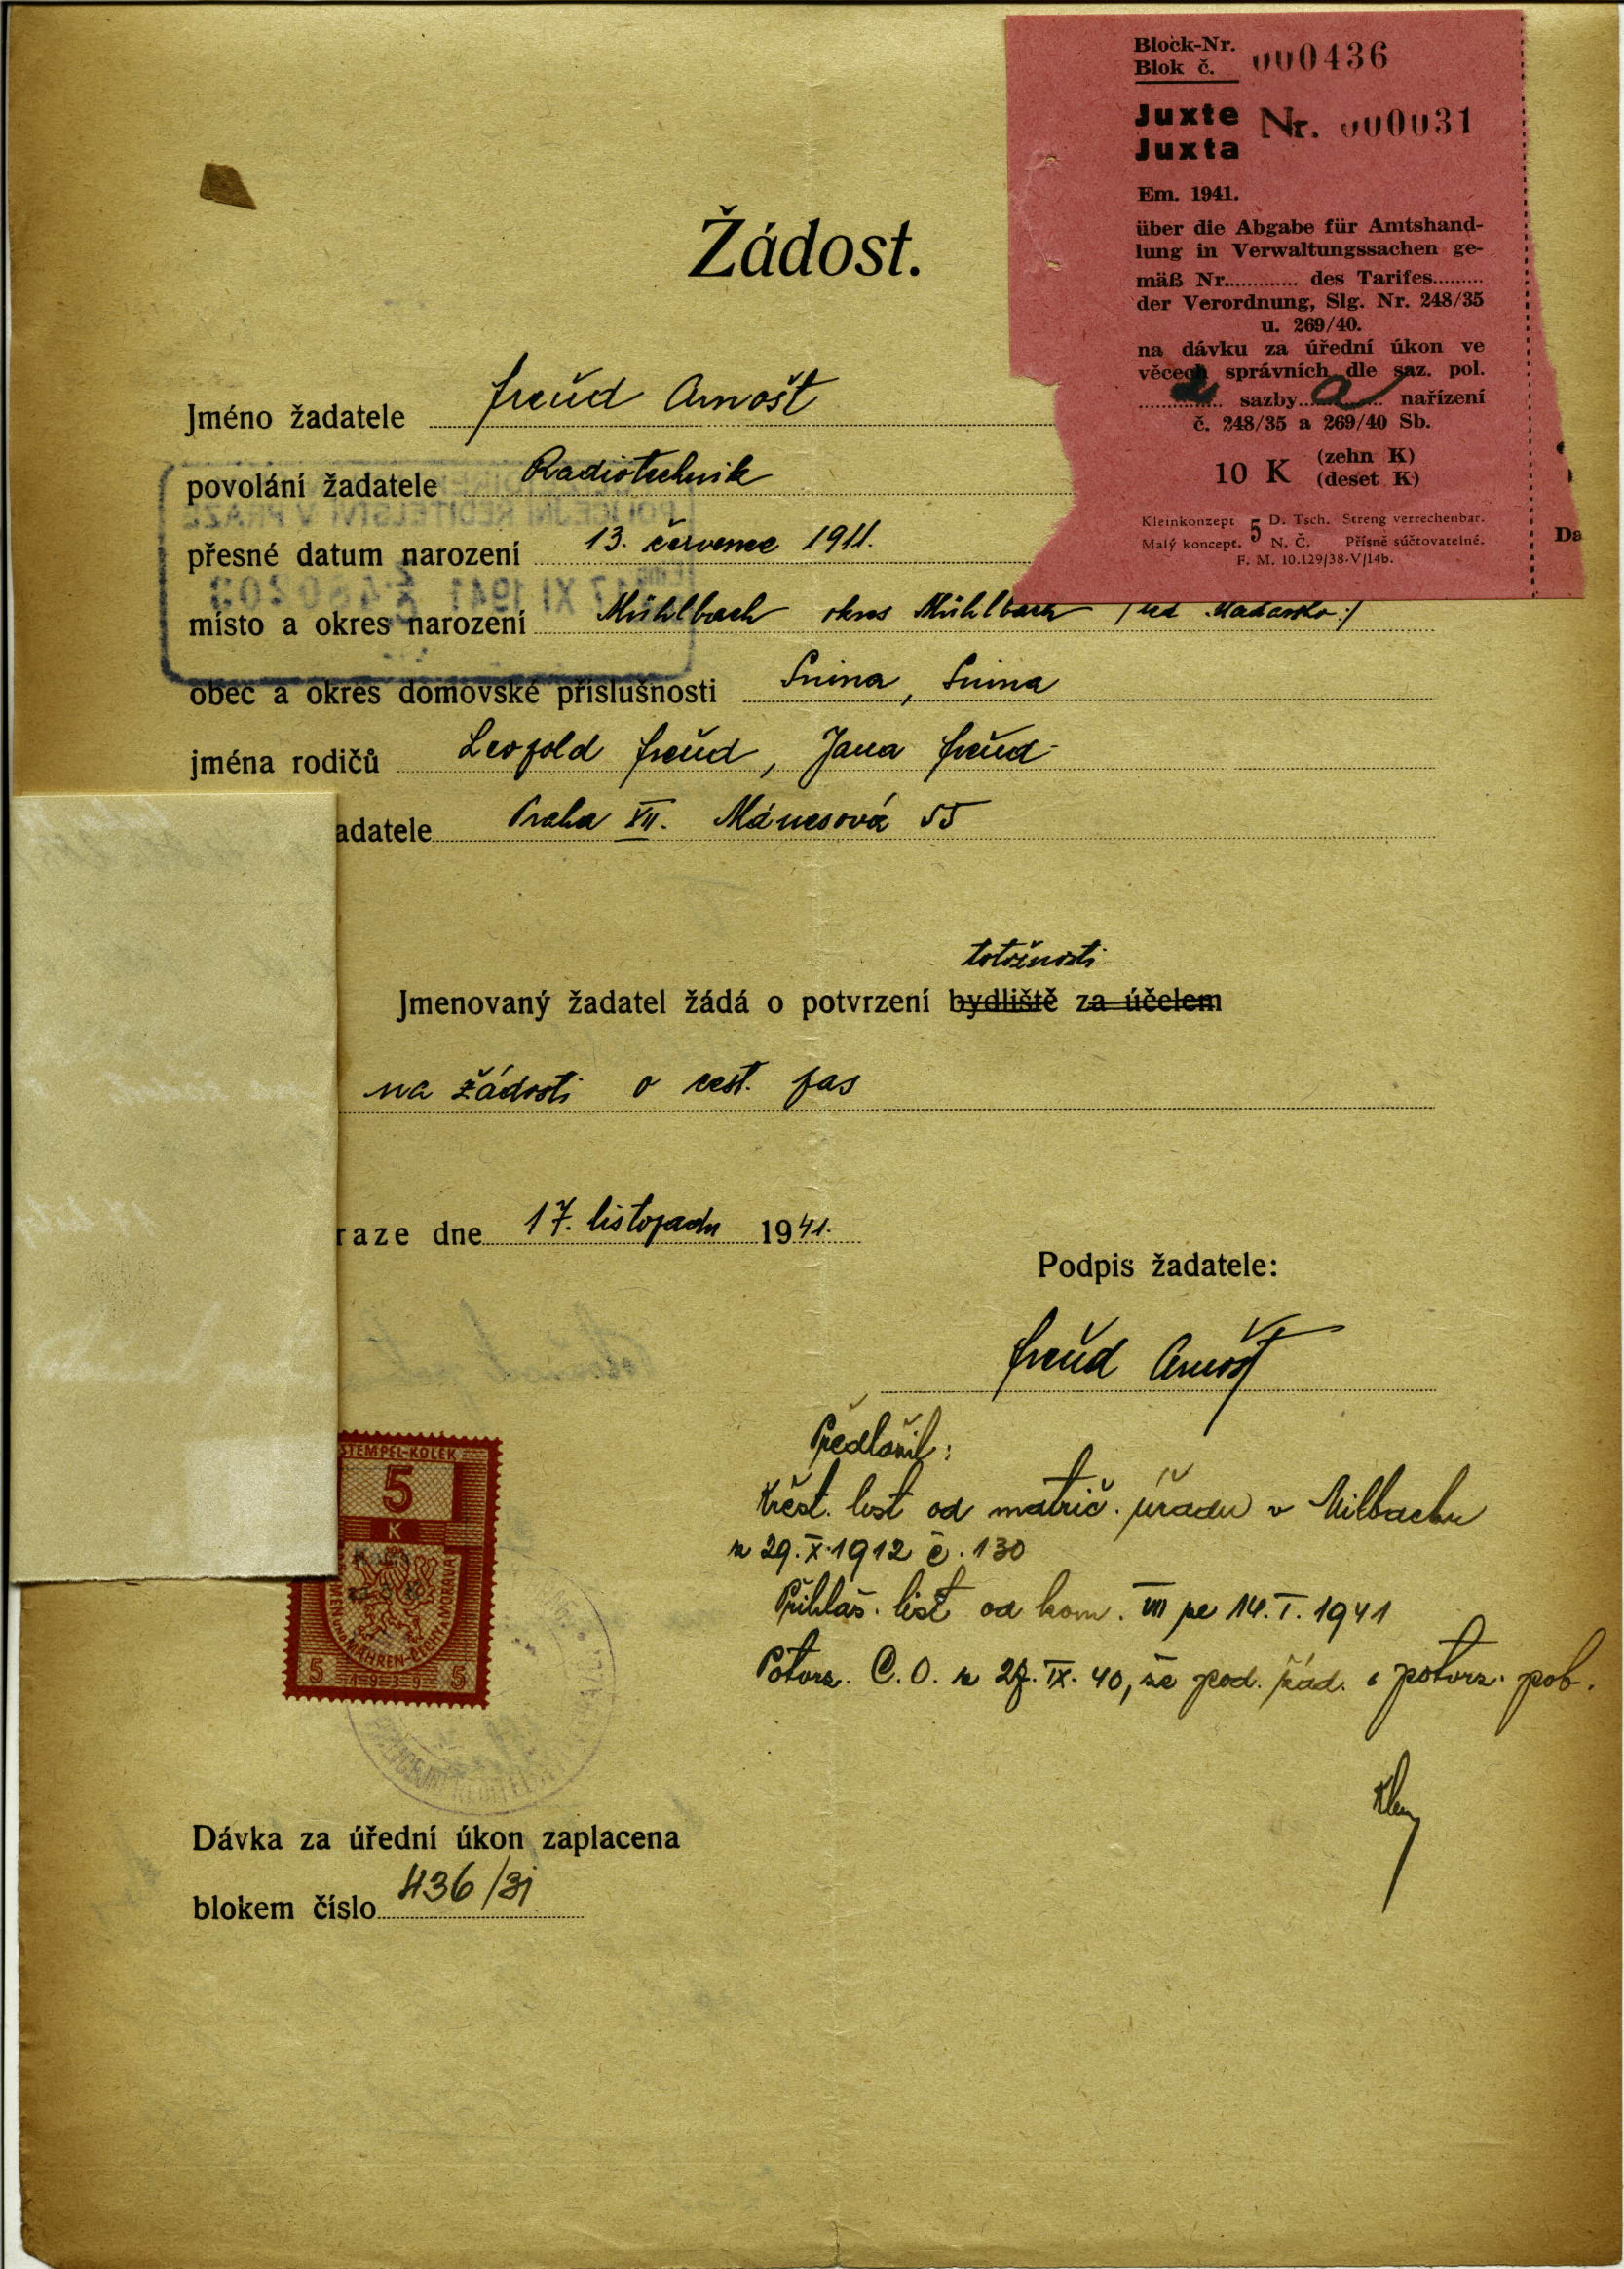 Block-Nr.
Blok č. 000436
Juxte
Juxta Nr. 000031
Em. 1941.
über die Abgabe für Amtshand-
lung in Verwaltungssachen ge-
mäß Nr............. des Tarifes.........
der Verordnung, Slg. Nr. 248/35
u. 269/40.
na dávku za úřední úkon ve
věcech správních dle saz. pol.
sazby a nařízení
č. 248/35 a 269/40 Sb.
10 K (zehn K)
(deset K)
Kleinkonzept 5 D. Tsch. Streng verrechenbar.
Malý koncept. N. Č. Přísně súčtovatelné.
F. M. 10.129/38-V/14b.
Da
Žádost.
Jméno žadatele Freud Arnošt
povolání žadatele Radiotechnik
přesné datum narození 13. července 1911.
místo a okres narození Mühlbach okres Mühlbach
obec a okres domovské příslušnosti Snina, Snina
jména rodičů Leopold Freud, Jana Freud
adatele Praha VII. Mánesová 55
totožnosti
Jmenovaný žadatel žádá o potvrzení bydliště za účelem
na žádosti o cest. pas
raze dne 17. listopadu 1941.
Podpis žadatele:
Freud Arnošt
Předložil:
Křest. list od matrič. úřadu v Milbachu
z 29.X.1912 č. 130
Přihláš. list od kom. VII ze 14.I.1941
Potvrz. C.O. z 27.IX.40, že pod. žád. o potvrz. pob.
STEMPEL-KOLEK
5
K
MÄHREN-ČECHY A MORAVA
5 1939 5
Dávka za úřední úkon zaplacena
blokem číslo 436/31